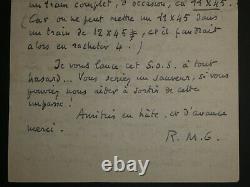 un train complet, d'occasion, ça 11 X 45.
(Car on ne peut mettre un 11 X 45 dans
un train de 12 X 45, et il faudrait
alors en racheter 4.)
Je vous lance cet S.O.S. à tout
hasard... Vous seriez un sauveur, si vous
pouviez nous aider à sortir de cette
impasse!
Amitiés en hâte, et d'avance
merci.
R. M. G.
www.collectibles-autographs.com